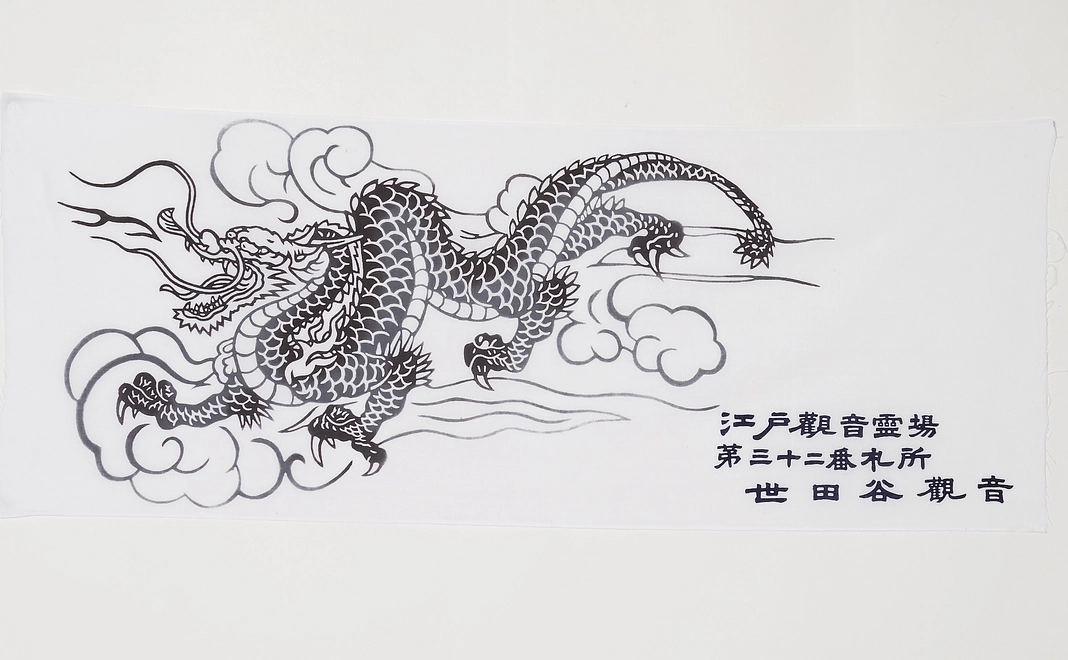 江戸觀音霊場
第三十二番札所
世田谷觀音